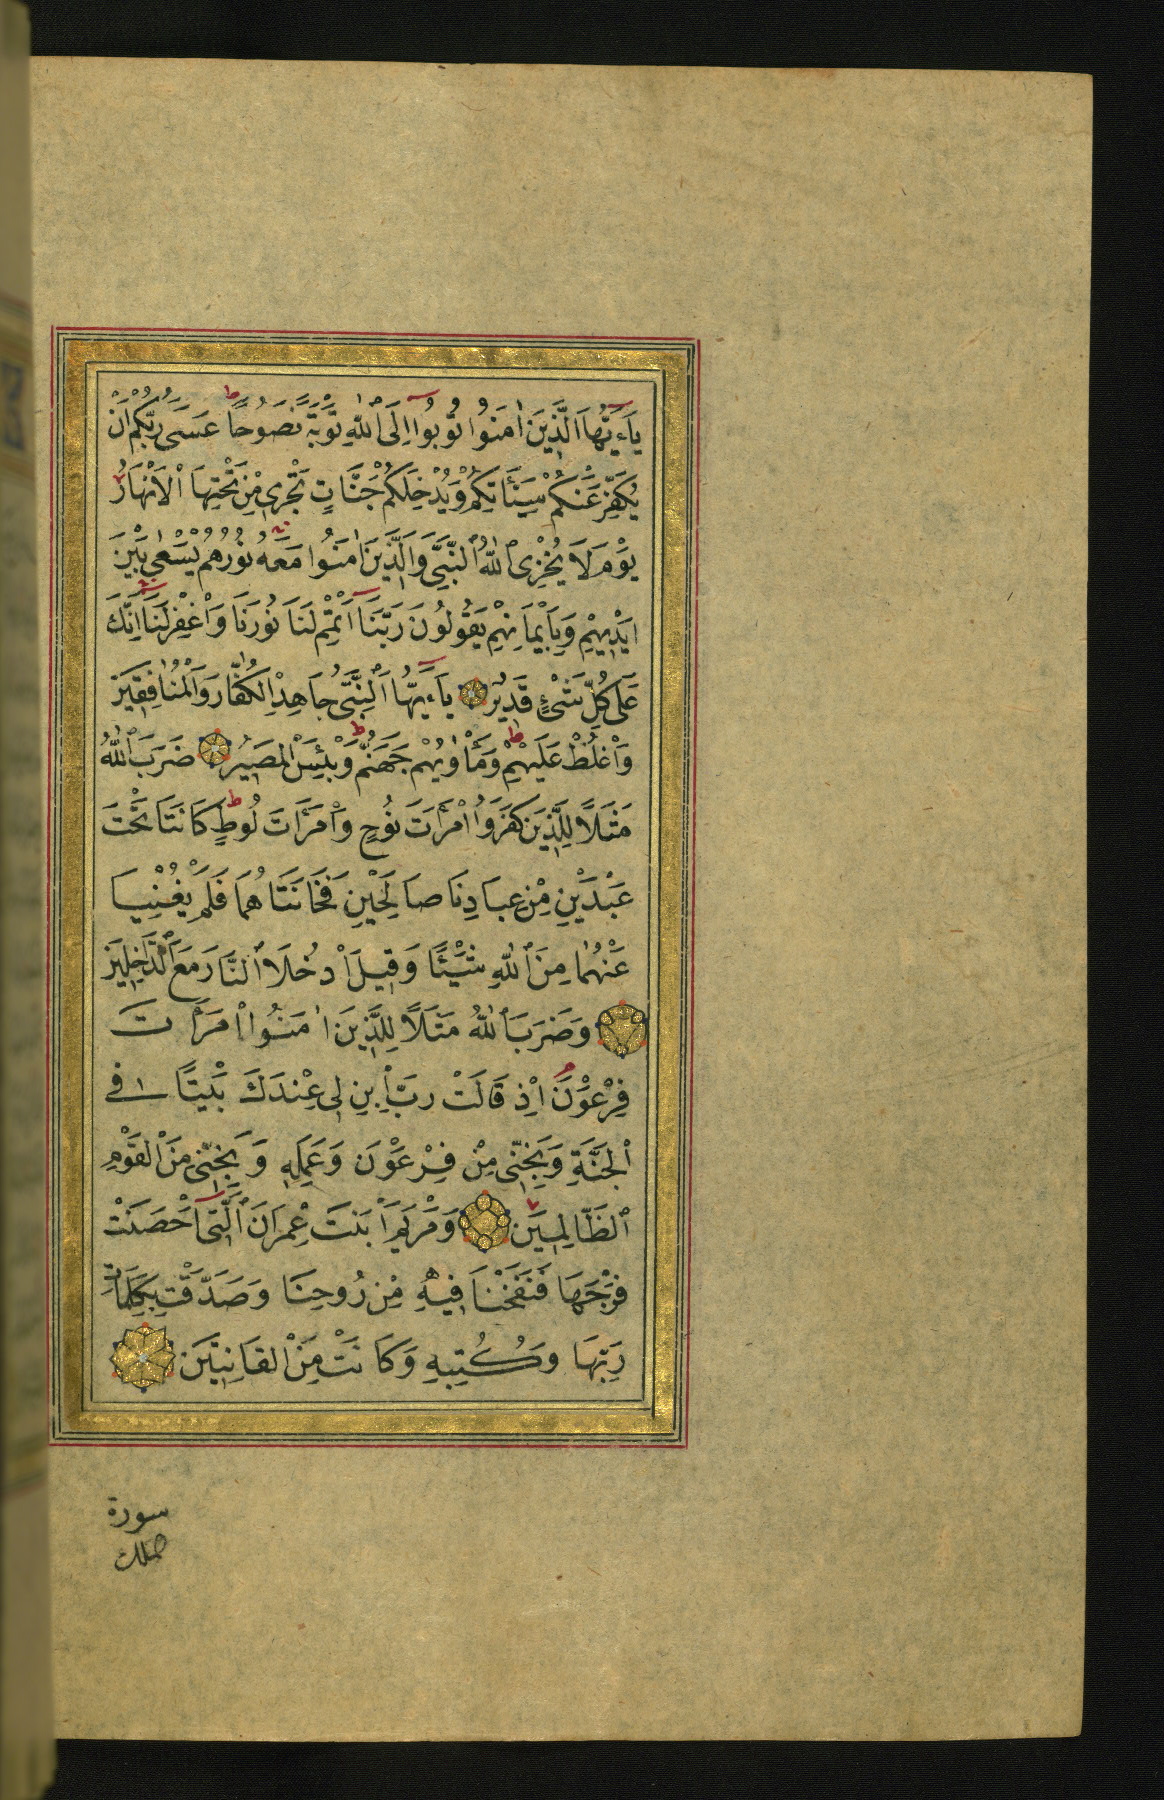 يَآءَيُّهَا الَّذِينَ اٰمَنُوا تُوبُوآ اِلَى اللّٰهِ تَوْبَةً نَصُوحًا عَسَى رَبُّكُمْ اَنْ
يُكَفِّرَ عَنْكُمْ سَيِّئَاتِكُمْ وَيُدْخِلَكُمْ جَنَّاتٍ تَجْرِى مِنْ تَحْتِهَا الْاَنْهَارُ
يَوْمَ لَا يُخْزِى اللّٰهُ النَّبِىَّ وَالَّذِينَ اٰمَنُوا مَعَهُ نُورُهُمْ يَسْعٰى بَيْنَ
اَيْدِيهِمْ وَبِاَيْمَانِهِمْ يَقُولُونَ رَبَّنَآ اَتْمِمْ لَنَا نُورَنَا وَاغْفِرْ لَنَا اِنَّكَ
عَلَى كُلِّ شَىْءٍ قَدِيرٌ يَآءَيُّهَا النَّبِىُّ جَاهِدِ الْكُفَّارَ وَالْمُنَافِقِينَ
وَاغْلُظْ عَلَيْهِمْ وَمَأْوٰيهُمْ جَهَنَّمُ وَبِئْسَ الْمَصِيرُ ضَرَبَ اللّٰهُ
مَثَلًا لِلَّذِينَ كَفَرُوا امْرَاَتَ نُوحٍ وَامْرَاَتَ لُوطٍ كَانَتَا تَحْتَ
عَبْدَيْنِ مِنْ عِبَادِنَا صَالِحَيْنِ فَخَانَتَاهُمَا فَلَمْ يُغْنِيَا
عَنْهُمَا مِنَ اللّٰهِ شَيْئًا وَقِيلَ ادْخُلَا النَّارَ مَعَ الدَّاخِلِينَ
وَضَرَبَ اللّٰهُ مَثَلًا لِلَّذِينَ اٰمَنُوا امْرَاَتَ
فِرْعَوْنَ اِذْ قَالَتْ رَبِّ ابْنِ لِى عِنْدَكَ بَيْتًا فِى
الْجَنَّةِ وَنَجِّنِى مِنْ فِرْعَوْنَ وَعَمَلِهِ وَنَجِّنِى مِنَ الْقَوْمِ
الظَّالِمِينَ وَمَرْيَمَ ابْنَتَ عِمْرَانَ الَّتِىٓ اَحْصَنَتْ
فَرْجَهَا فَنَفَخْنَا فِيهِ مِنْ رُوحِنَا وَصَدَّقَتْ بِكَلِمَاتِ
رَبِّهَا وَكُتُبِهِ وَكَانَتْ مِنَ الْقَانِتِينَ
سورة
الملك